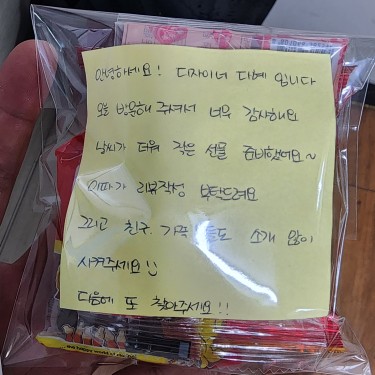 안녕하세요! 디자이너 다혜 입니다
오늘 방문해 주셔서 너무 감사해요
날씨가 더워 작은 선물 준비했어요~
이따가 리뷰작성 부탁드려요
그리고 친구, 가족 들도 소개 많이
시켜주세요
다음에 또 찾아주세요!!